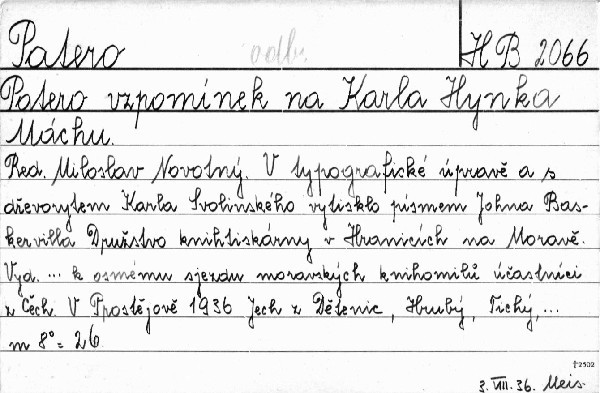 Patero odb. HB 2066
Patero vzpomínek na Karla Hynka
Máchu.
Red. Miloslav Novotný. V typografické úpravě a s
dřevorytem Karla Svolinského vytisklo písmem Johna Bas-
kervilla Družstvo knihtiskárny v Hranicích na Moravě.
Vyd. ... k osmému sjezdu moravských knihomilů účastníci
z Čech. V Prostějově 1936 Jech z Dětenic, Hrubý, Tichý, ...
m 8° = 26
†2502
3. VIII. 36. Meis.